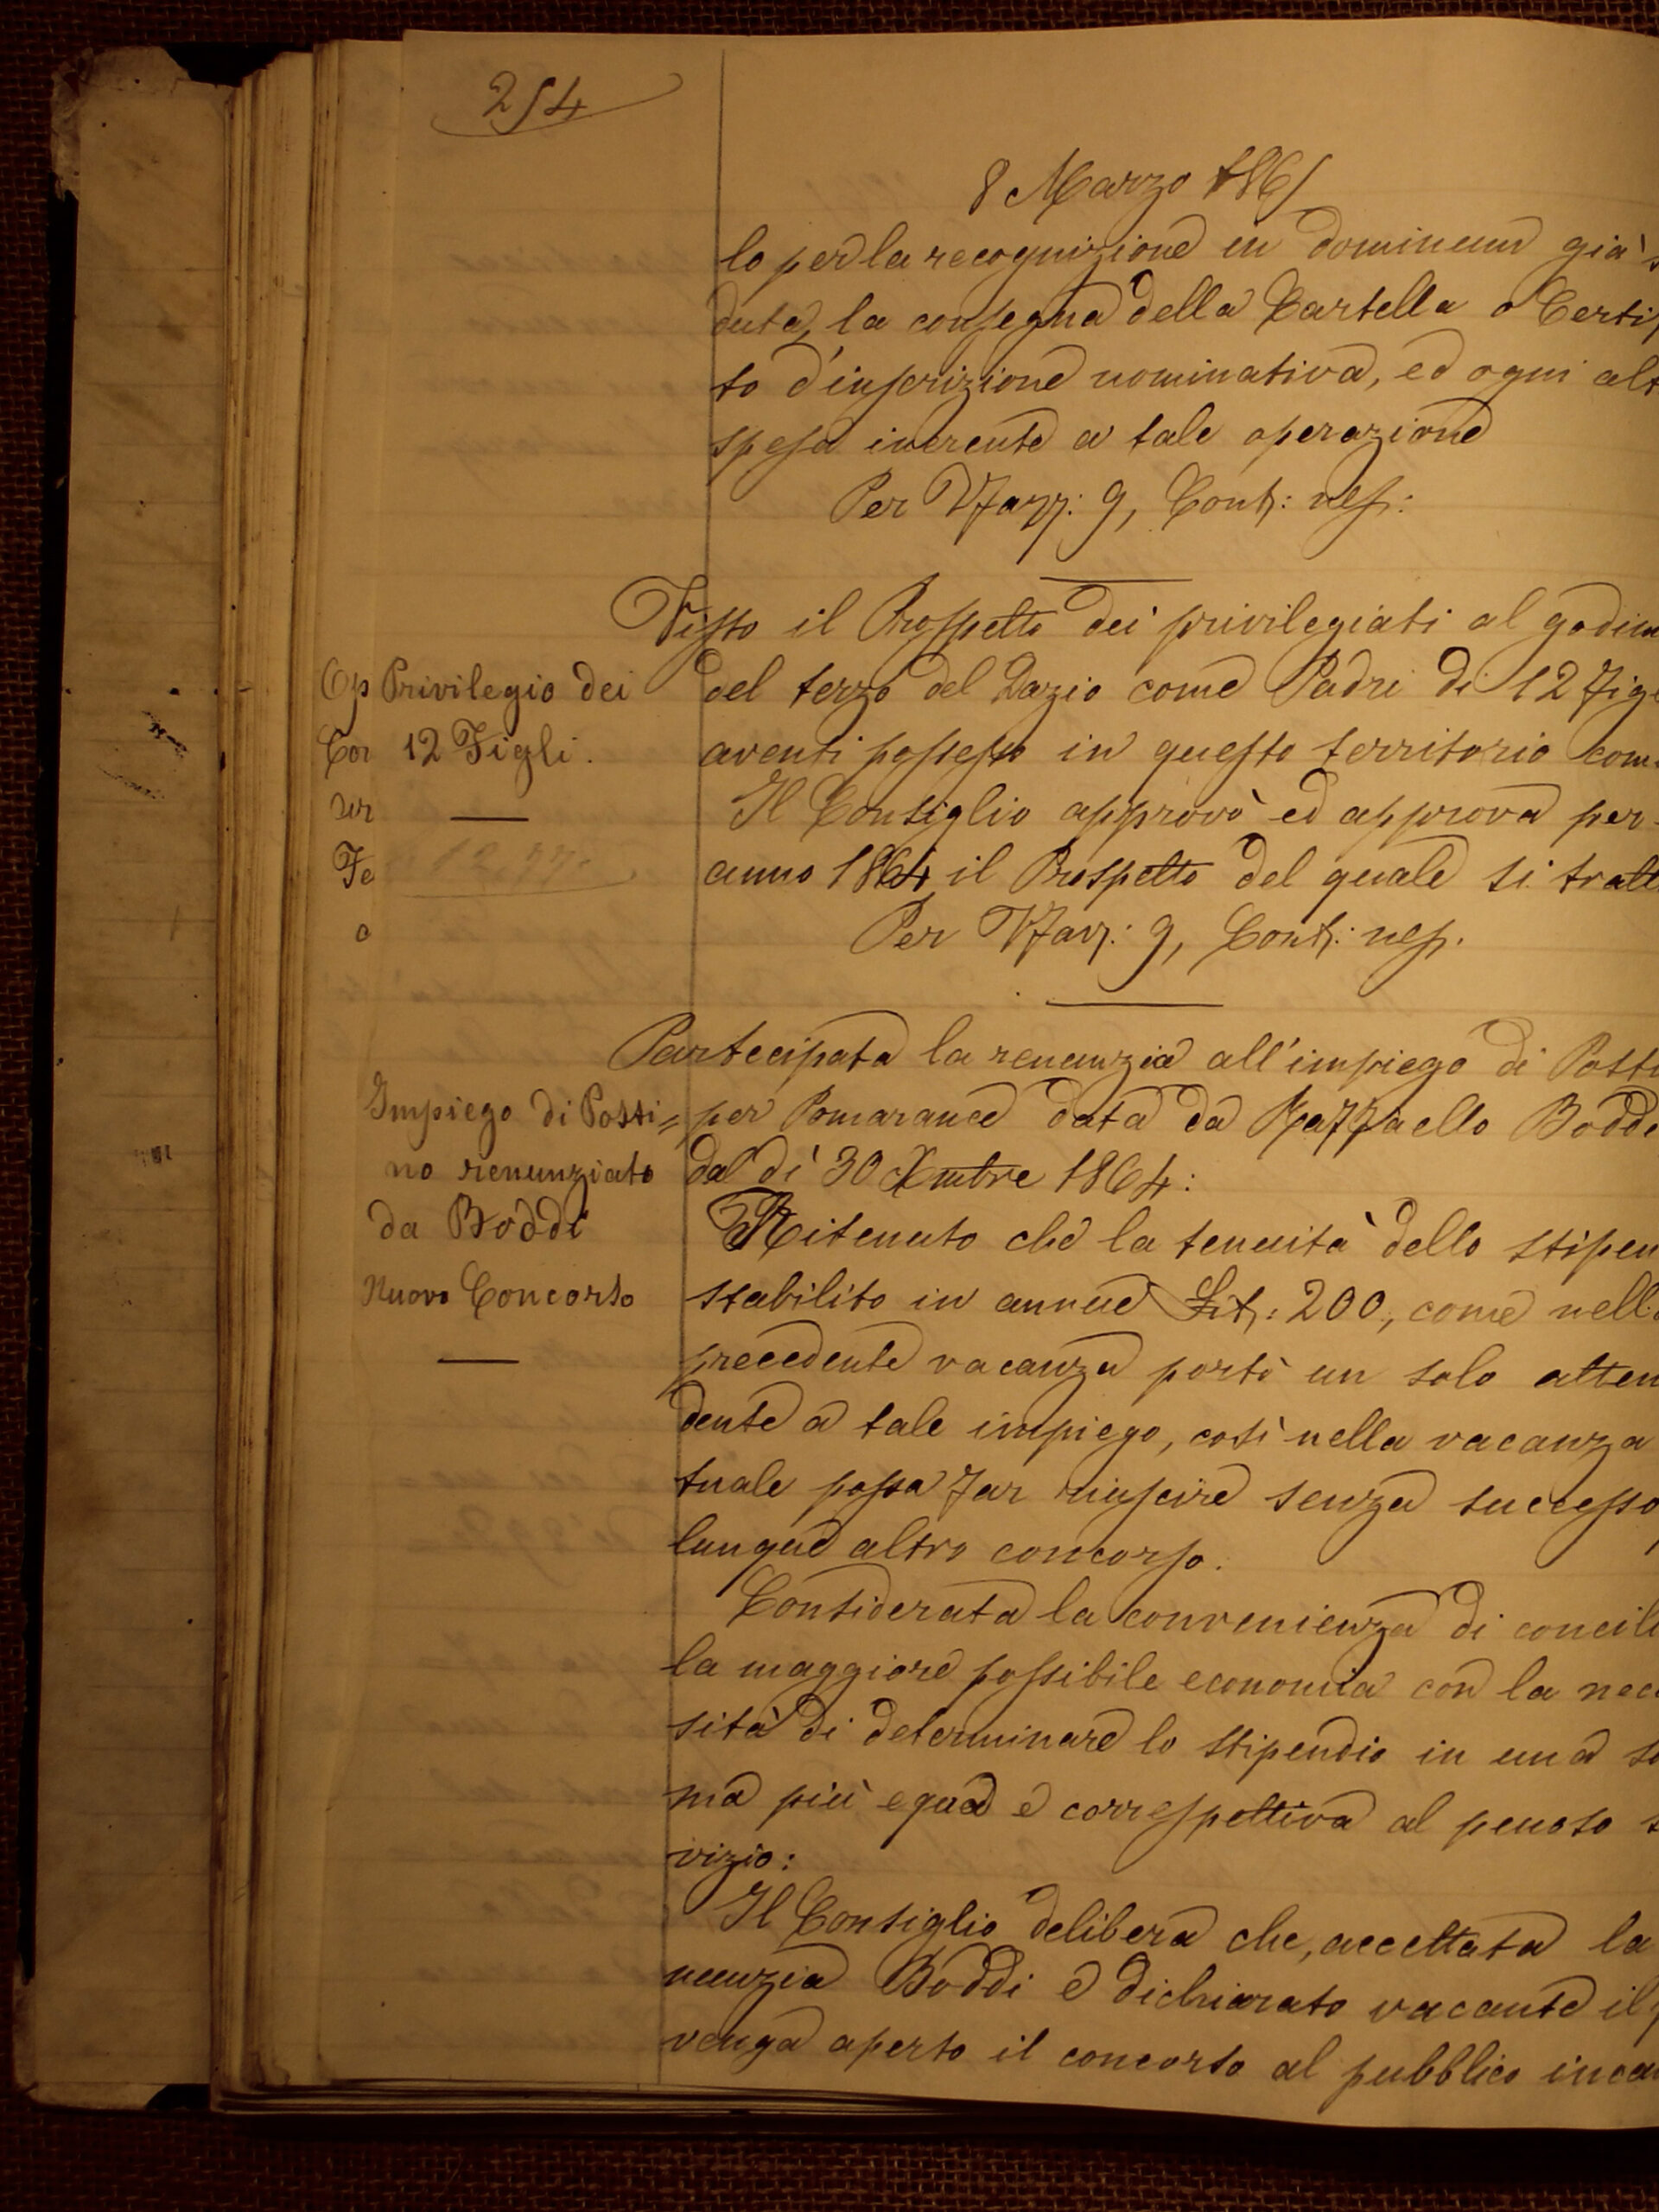 254
8 Marzo 1865
lo per la recognizione in dominum già s
duta, la consegna della Cartella o Certif
to d'inscrizione nominativa, ed ogni alt
spesa inerente a tale operazione
Per Vti favj: 9, Contj: ness:
Visto il Prospetto dei privilegiati al godim
Privilegio dei
12 Figli.
del terzo del Dazio come Padri di 12 Figl
aventi possesso in questo territorio com
Il Consiglio approvò ed approva per
anno 1864 il Prospetto del quale si tratt
Per Vti favj: 9, Contj: ness.
Partecipata la renunzia all'impiego di Posti
Impiego di Posti=
no renunziato
da Boddi
Nuovo Concorso
per Pomarance data da Raffaello Boddi
dal dì 30 Xmbre 1864:
Ritenuto che la tenuità dello stipen
stabilito in annue Lit: 200, come nella
precedente vacanza portò un solo atten
dente a tale impiego, così nella vacanza
tuale possa far riuscire senza successo
lunque altro concorso.
Considerata la convenienza di concili
la maggiore possibile economia con la nece
sità di determinare lo stipendio in una so
ma più equa e correspettiva al penoso s
vizio:
Il Consiglio delibera che, accettata la
nunzia Boddi e dichiarato vacante il p
venga aperto il concorso al pubblico incan
Op
Cor
ur
Fe
a